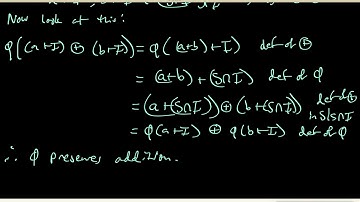 Now look at this:
φ((a+I) ⊕ (b+I)) = φ((a+b)+I) def of ⊕
= (a+b)+(S∩I) def of φ
= (a+(S∩I)) ⊕ (b+(S∩I)) def of ⊕
in S/S∩I
= φ(a+I) ⊕ φ(b+I) def of φ
∴ φ preserves addition.